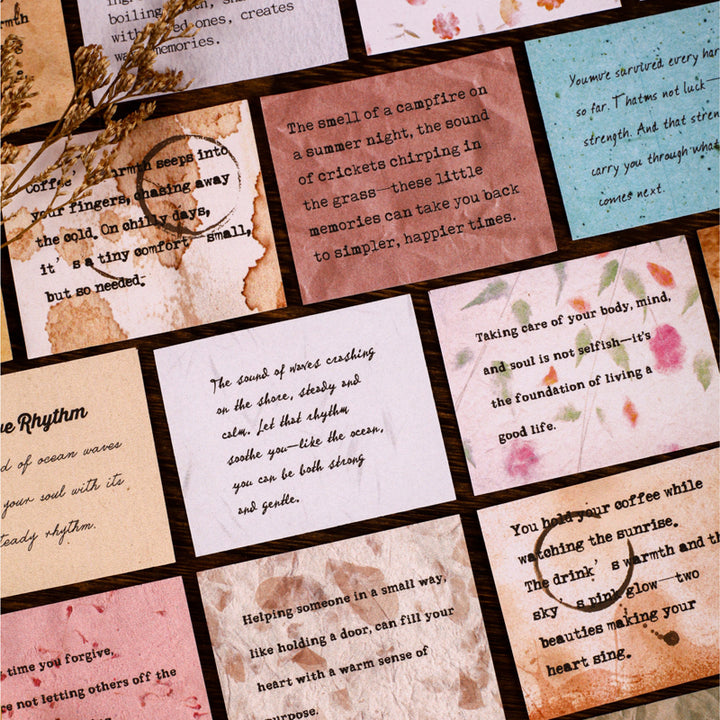 boiling
ones, creates
memories.
The smell of a campfire on
a summer night, the sound
of crickets chirping in
the grass—these little
memories can take you back
to simpler, happier times.
Youmve survived every har
so far. Thatms not luck—
strength. And that stren
carry you through what
comes next.
seeps into
your fingers, chasing away
the cold. On chilly days,
it' s a tiny comfort—small,
but so needed.
ve Rhythm
d of ocean waves
your soul with its
teady rhythm.
The sound of waves crashing
on the shore, steady and
calm. Let that rhythm
soothe you—like the ocean,
you can be both strong
and gentle.
Taking care of your body, mind,
and soul is not selfish—it's
the foundation of living a
good life.
time you forgive,
ce not letting others off the
Helping someone in a small way,
like holding a door, can fill your
heart with a warm sense of
purpose.
You hold your coffee while
watching the sunrise.
The drink' s warmth and th
sky' s pink glow—two
beauties making your
heart sing.